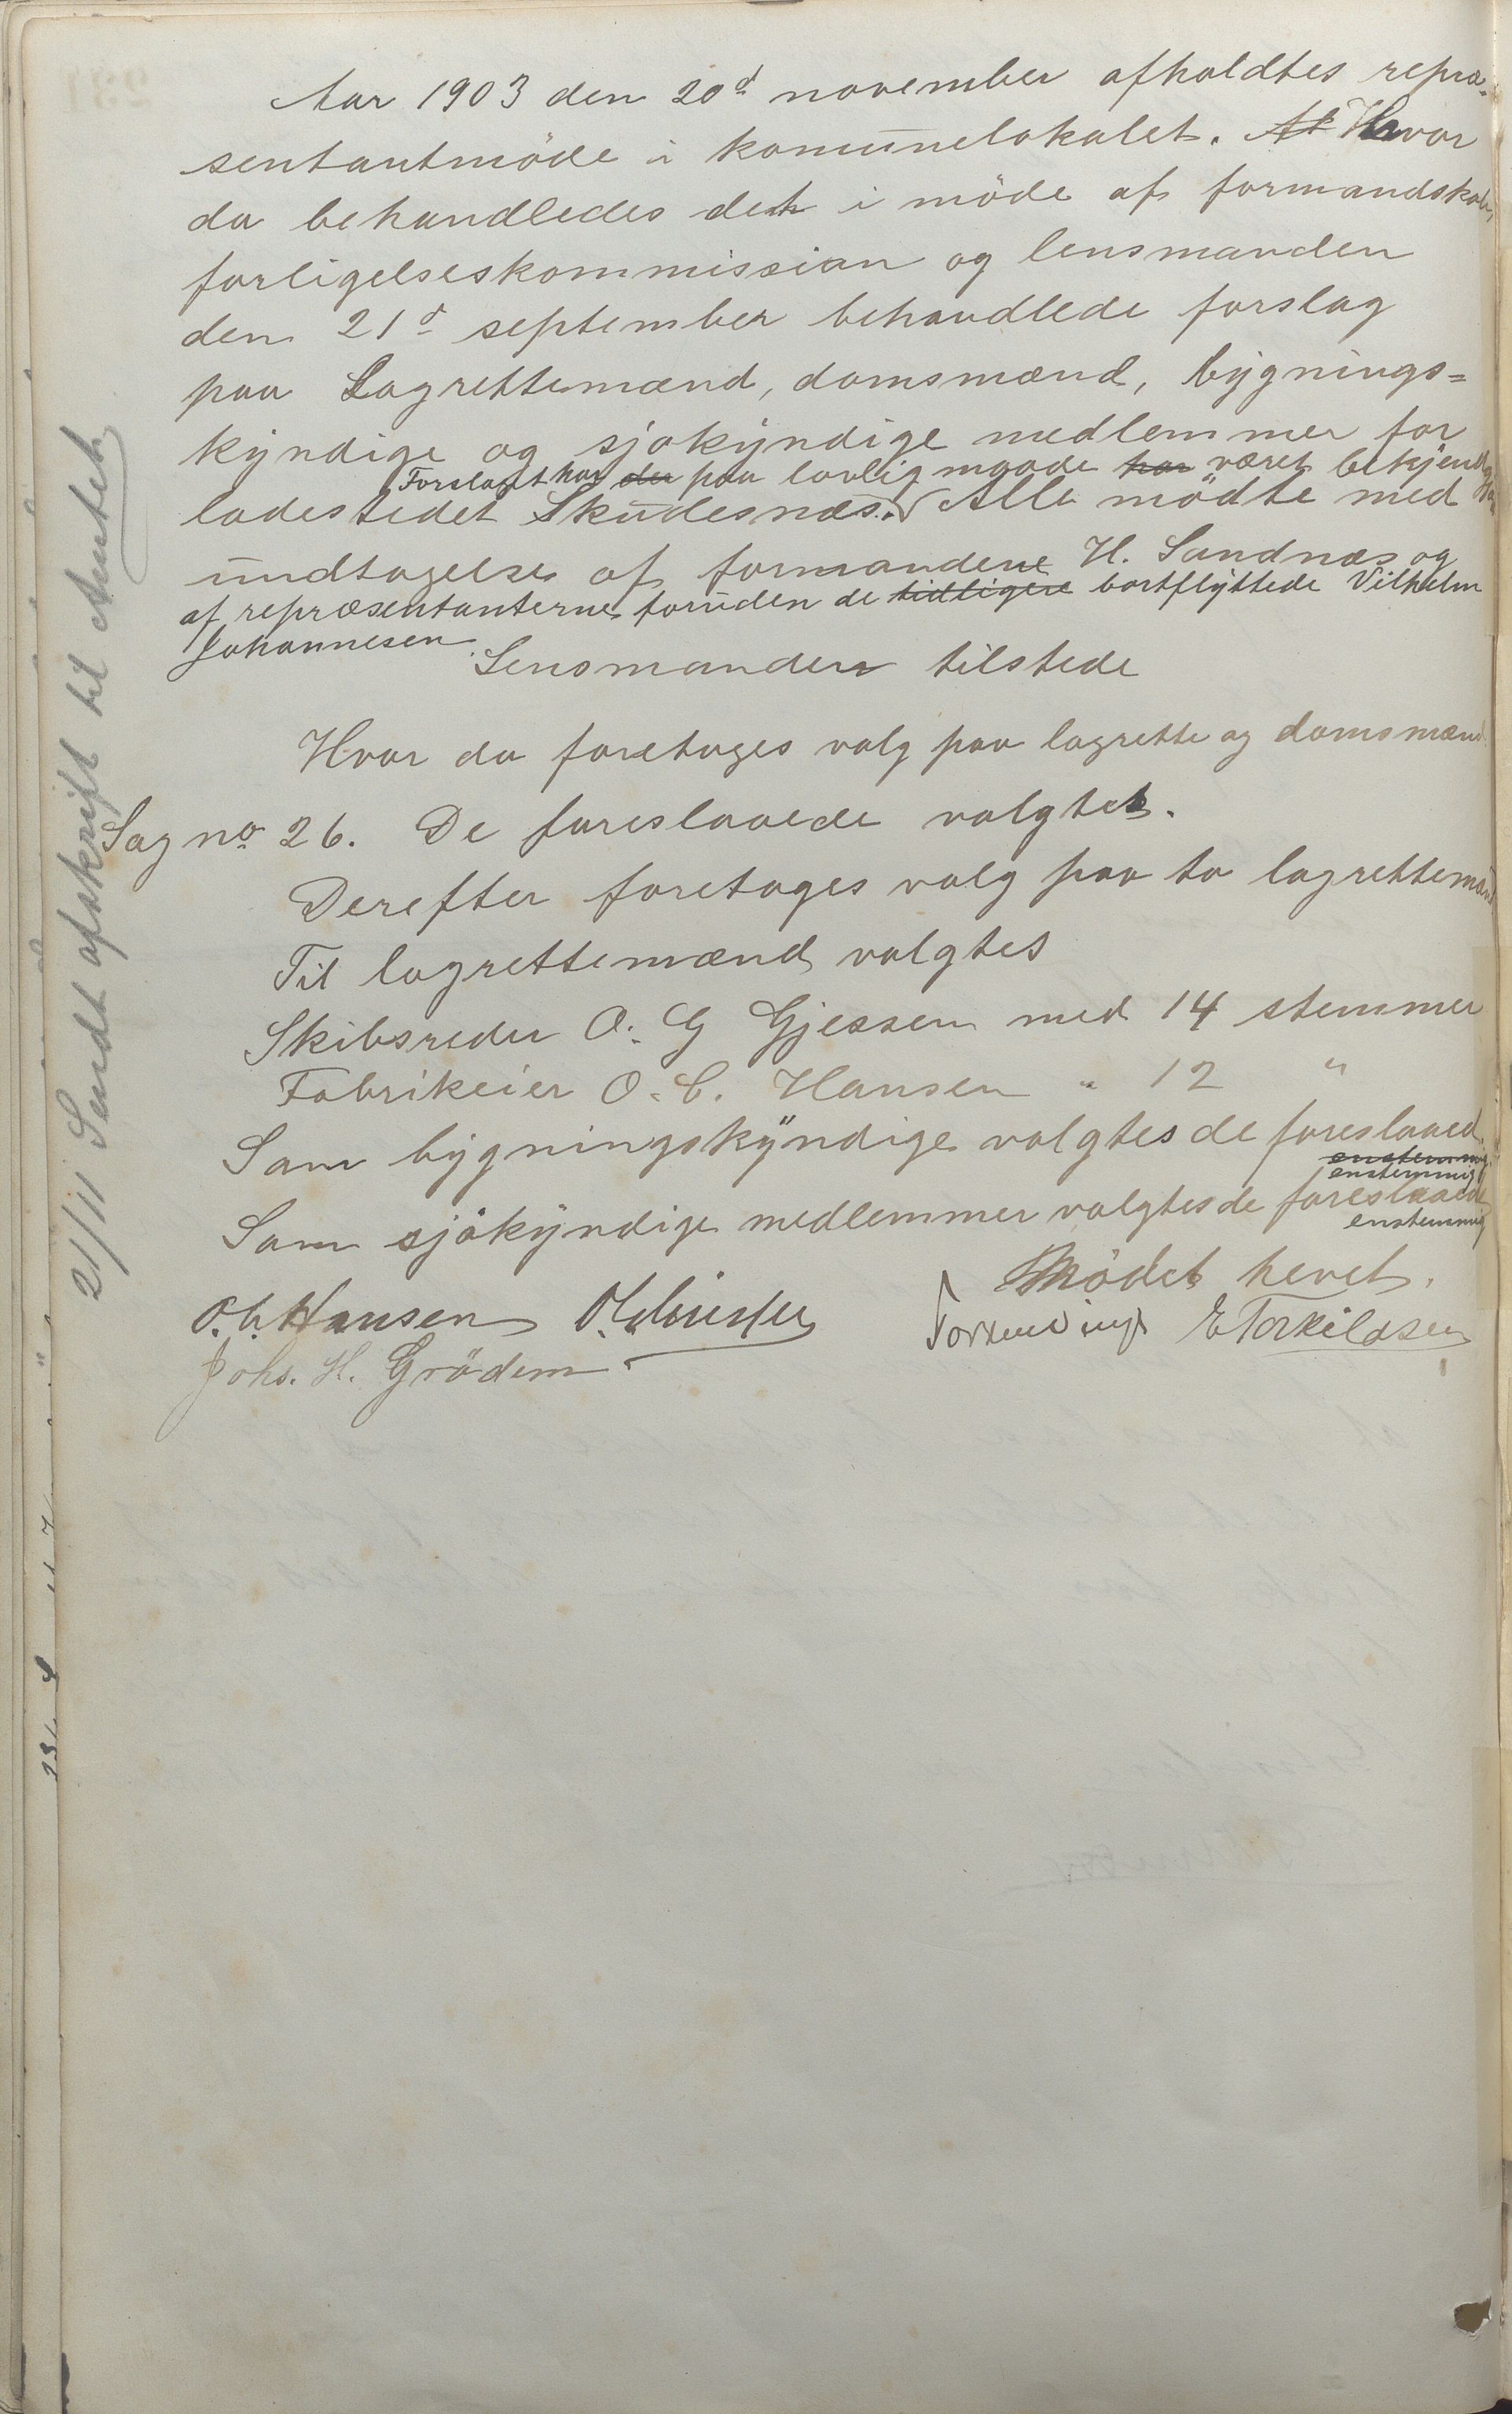 Aar 1903 den 20d november afholdtes repræ-
sentantmöde i komunelokalet. At Hvor
da behandledes det i möde af formandskab,
forligelseskommission og lensmanden
den 21d september behandlede forslag
paa Lagrettemænd, domsmænd, bygnings=
kyndige og sjøkyndige medlemmer for
Forslaget har der paa lovlig maade har været bekjendtgjort
ladestedet Skudesnæs. Alle mödte med
undtagelse af formandene H. Sandnæs og
af repræsentanterne foruden de tidligere bortflyttede Vilhelm
Johannesen.
Lensmanden tilstede
Hvor da foretages valg paa lagrette og domsmænd.
Sag no 26. De foreslaaede valgtes.
Derefter foretages valg paa to lagrettemænd
Til lagrettemænd valgtes
Skibsreder O. G Gjessen med 14 stemmer
Fabrikeier O. C. Hansen " 12 "
Som bygningskyndige valgtes de foreslaaed.
enstemmig
enstemmig
Som sjökyndige medlemmer valgtes de foreslaaede
enstemmig
Mödet hevet.
O. C. Hansen
E Torkildsen
Johs. H. Grödem
21/11 Sendt afskrift til Amtet